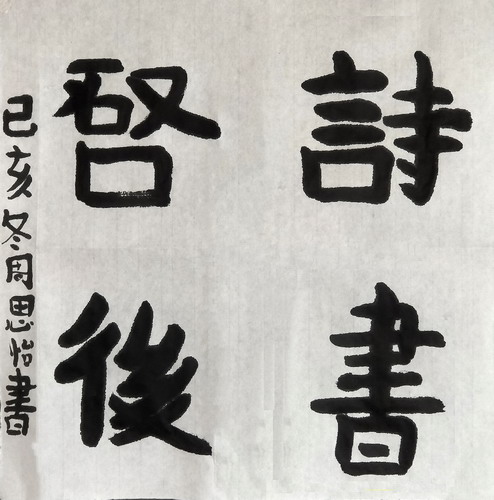 詩書
啓後
己亥冬周思怡書